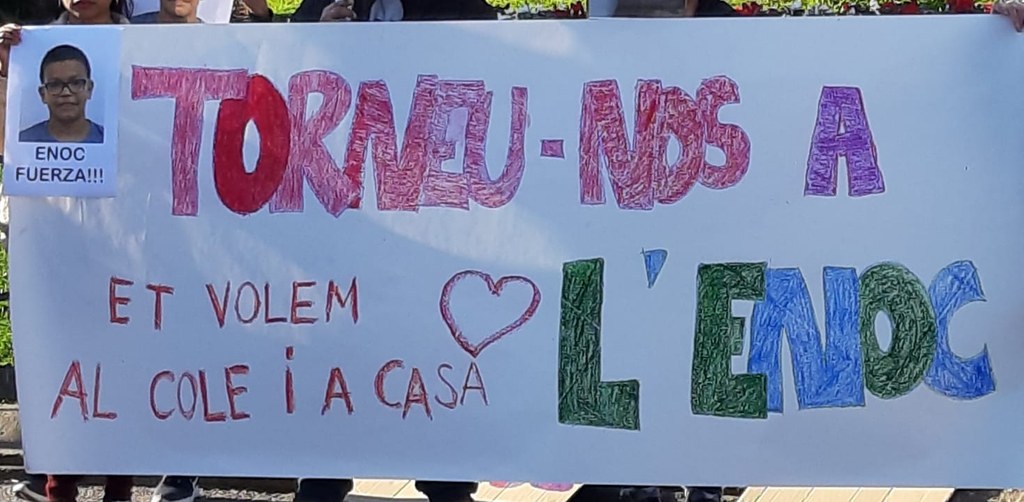 ENOC
FUERZA!!!
TORNEU-NOS A
L'ENOC
ET VOLEM
AL COLE i A CASA